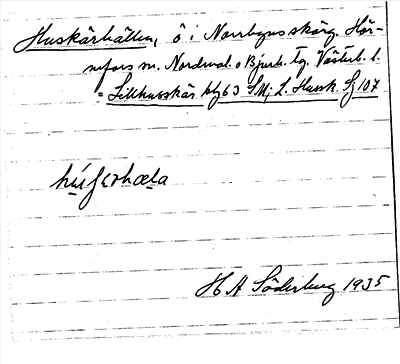 Huskärhällan, ö i Norrbynsskärg. Hör-
nefors sn. Nordmal. o Bjurh. tg. Västerb. l.
= Lillhusskär blg 63 SV; L. Hussk. Sj 107
H A Söderberg 1935